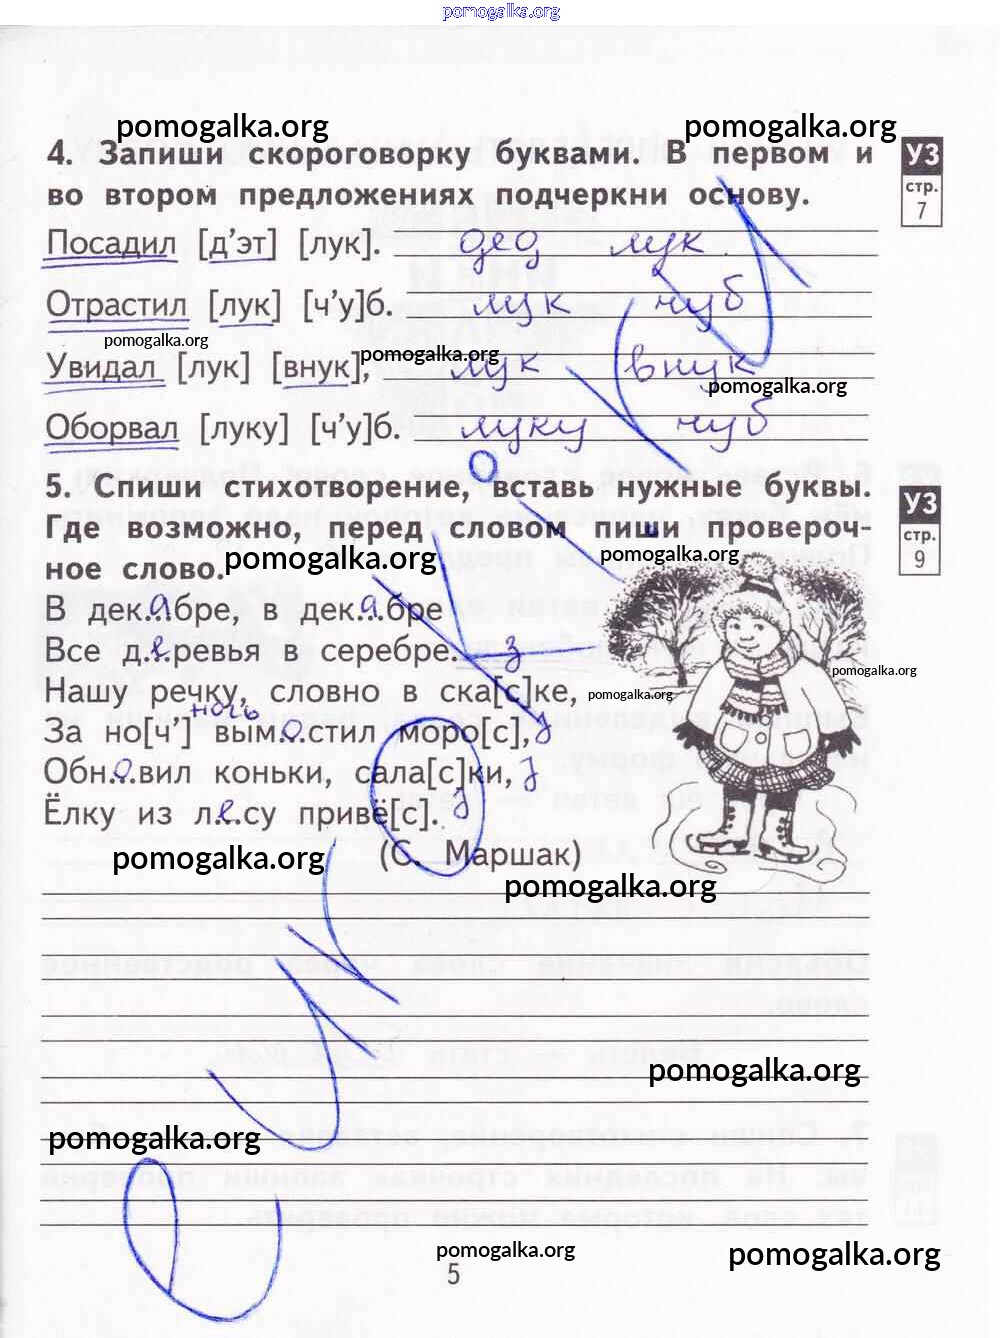 pomogalka.org
pomogalka.org pomogalka.org
4. Запиши скороговорку буквами. В первом и УЗ
во втором предложениях подчеркни основу. стр.
7
Посадил [д’эт] [лук]. дед лук.
Отрастил [лук] [ч’у]б. лук чуб
pomogalka.org pomogalka.org
Увидал [лук] [внук], лук внук
pomogalka.org
Оборвал [луку] [ч’у]б. луку чуб
5. Спиши стихотворение, вставь нужные буквы. УЗ
Где возможно, перед словом пиши провероч- стр.
ное слово. 9
pomogalka.org pomogalka.org
В дек.а.бре, в дек.а.бре
Все д.е.ревья в серебре.
з
pomogalka.org
Нашу речку, словно в ска[с]ке,
pomogalka.org
ночь
За но[ч’] вым.о.стил моро[с], з
Обн.о.вил коньки, сала[с]ки, з
з
Ёлку из л.е.су привё[с].
(С. Маршак)
pomogalka.org
pomogalka.org
pomogalka.org
pomogalka.org
pomogalka.org pomogalka.org
5